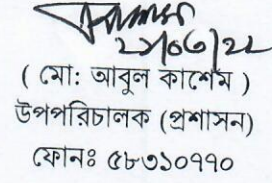 ২১/০৬/২২
( মো: আবুল কাশেম )
উপপরিচালক (প্রশাসন)
ফোনঃ ৫৮৩১০৭৭০